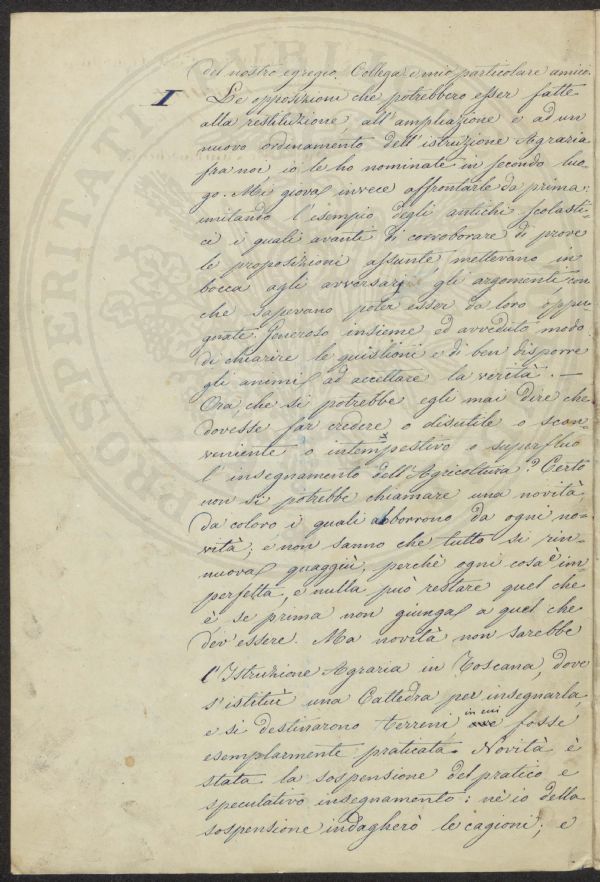 del nostro egregio Collega e mio particolare amico.
I Le opposizioni che potrebbero esser fatte
alla restituzione, all'ampliazione e ad un
nuovo ordinamento dell'istruzione Agraria
fra noi, io le ho nominate in secondo luo-
go. Mi giova invece affrontarle da prima:
imitando l'esempio degli antichi scolasti-
ci i quali avanti di corroborare di prove
le proposizioni assunte, mettevano in
bocca agli avversari gli argomenti con
che sapevano poter esser da loro oppu-
gnate. Generoso insieme ed avveduto modo
di chiarire le quistioni e di ben disporre
gli animi ad accettare la verità. —
Ora, che si potrebbe egli mai dire che
dovesse far credere o disutile o scon-
veniente o intempestivo o superfluo
l'insegnamento dell'Agricoltura? Certo
non si potrebbe chiamare una novità,
da coloro i quali abborrono da ogni no-
vità; e non sanno che tutto si rin-
nuova quaggiù, perchè ogni cosa è im-
perfetta, e nulla può restare quel che
è se prima non giunga a quel che
dev'essere. Ma novità non sarebbe
l'Istruzione Agraria in Toscana, dove
s'istituì una Cattedra per insegnarla,
e si destinarono terreni in cui fosse
esemplarmente praticata. Novità è
stata la sospensione del pratico e
speculativo insegnamento: nè io della
sospensione indagherò le cagioni; e